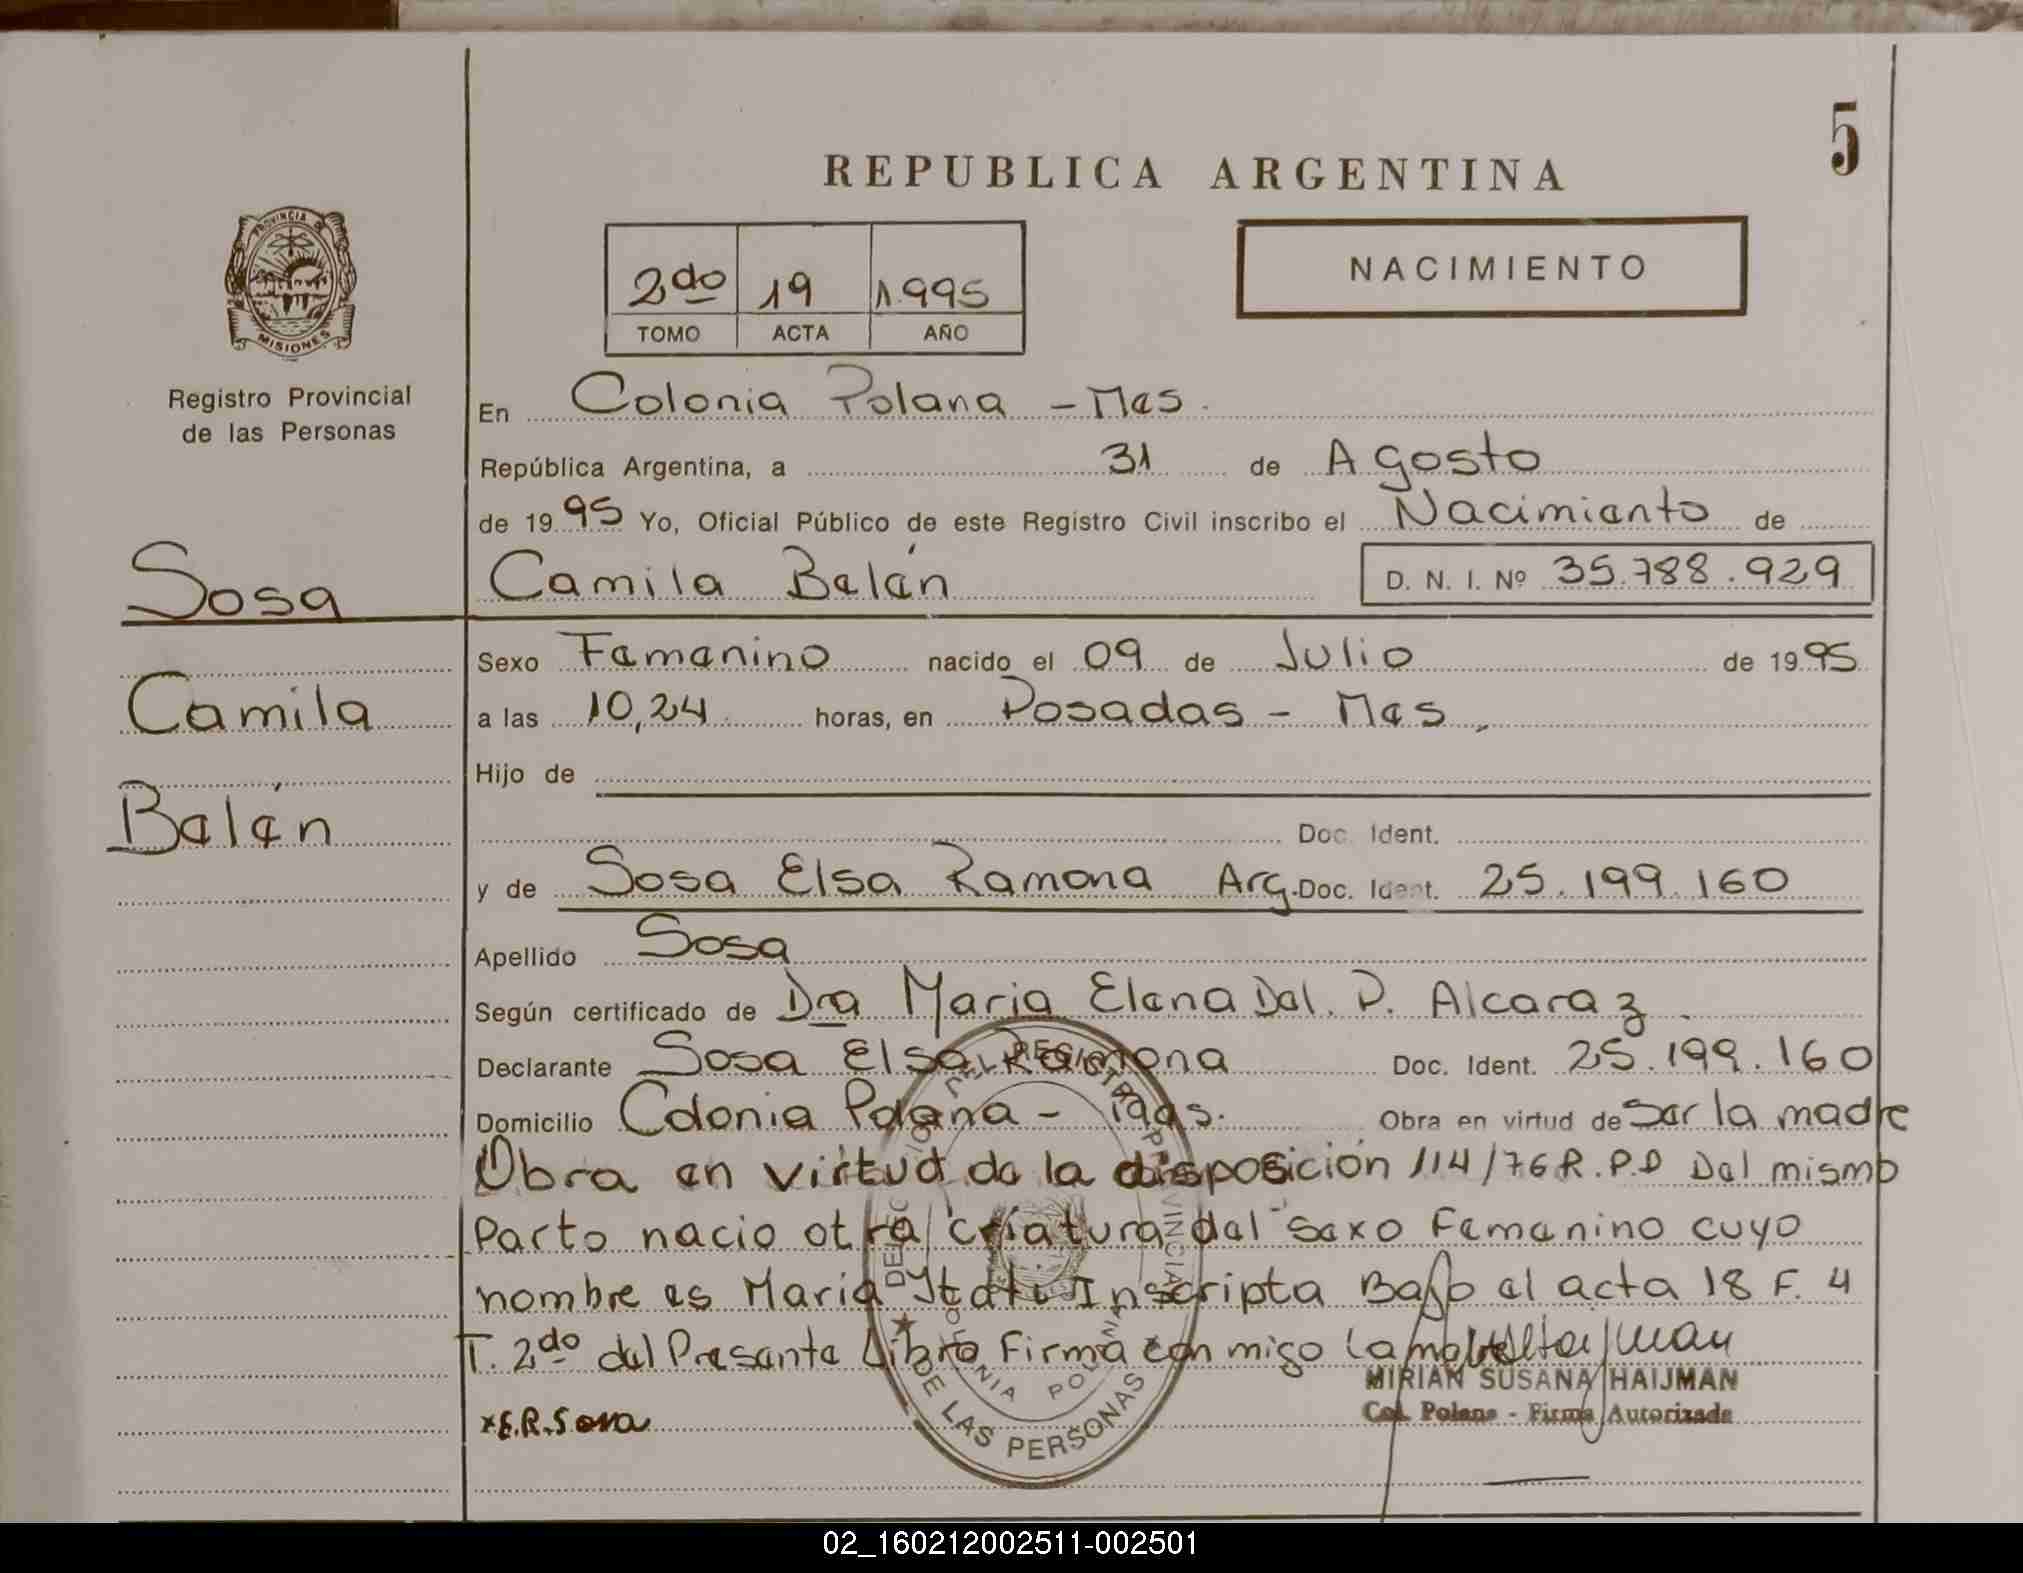 5
REPUBLICA ARGENTINA
PROVINCIA DE
MISIONES
Registro Provincial
de las Personas
2do 19 1.995
TOMO ACTA AÑO
NACIMIENTO
En Colonia Polana - Mes.
República Argentina, a 31 de Agosto
de 1995 Yo, Oficial Público de este Registro Civil inscribo el Nacimiento de
Camila Belén D. N. I. Nº 35.788.929
Sosa
Camila
Belén
Sexo Femenino nacido el 09 de Julio de 1995
a las 10,24 horas, en Posadas - Mes.
Hijo de
Doc. Ident.
y de Sosa Elsa Ramona Arg. Doc. Ident. 25.199.160
Apellido Sosa
Según certificado de Dra Maria Elena Del. P. Alcaraz
Declarante Sosa Elsa Ramona Doc. Ident. 25.199.160
Domicilio Colonia Polana - Obra en virtud de Ser la madre
Obra en virtud de la disposición 114/76 R.P.P Del mismo
Parto nacio otra criatura del sexo Femenino cuyo
nombre es Maria Itati Inscripta Bajo el acta 18 F. 4
T. 2do del Presente Libro Firma con migo la madre
x E.R. Sosa
MIRIAN SUSANA HAIJMAN
Col. Polana - Firma Autorizada
DEL REGISTRO PROVINCIAL DE LAS PERSONAS
COLONIA POLANA
02_160212002511-002501